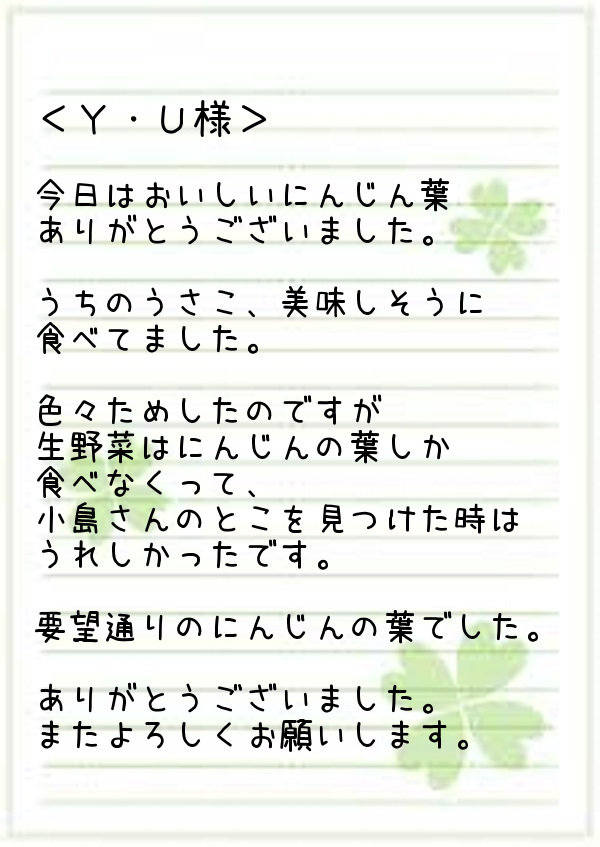 ＜Ｙ・Ｕ様＞
今日はおいしいにんじん葉
ありがとうございました。
うちのうさこ、美味しそうに
食べてました。
色々ためしたのですが
生野菜はにんじんの葉しか
食べなくって、
小島さんのとこを見つけた時は
うれしかったです。
要望通りのにんじんの葉でした。
ありがとうございました。
またよろしくお願いします。